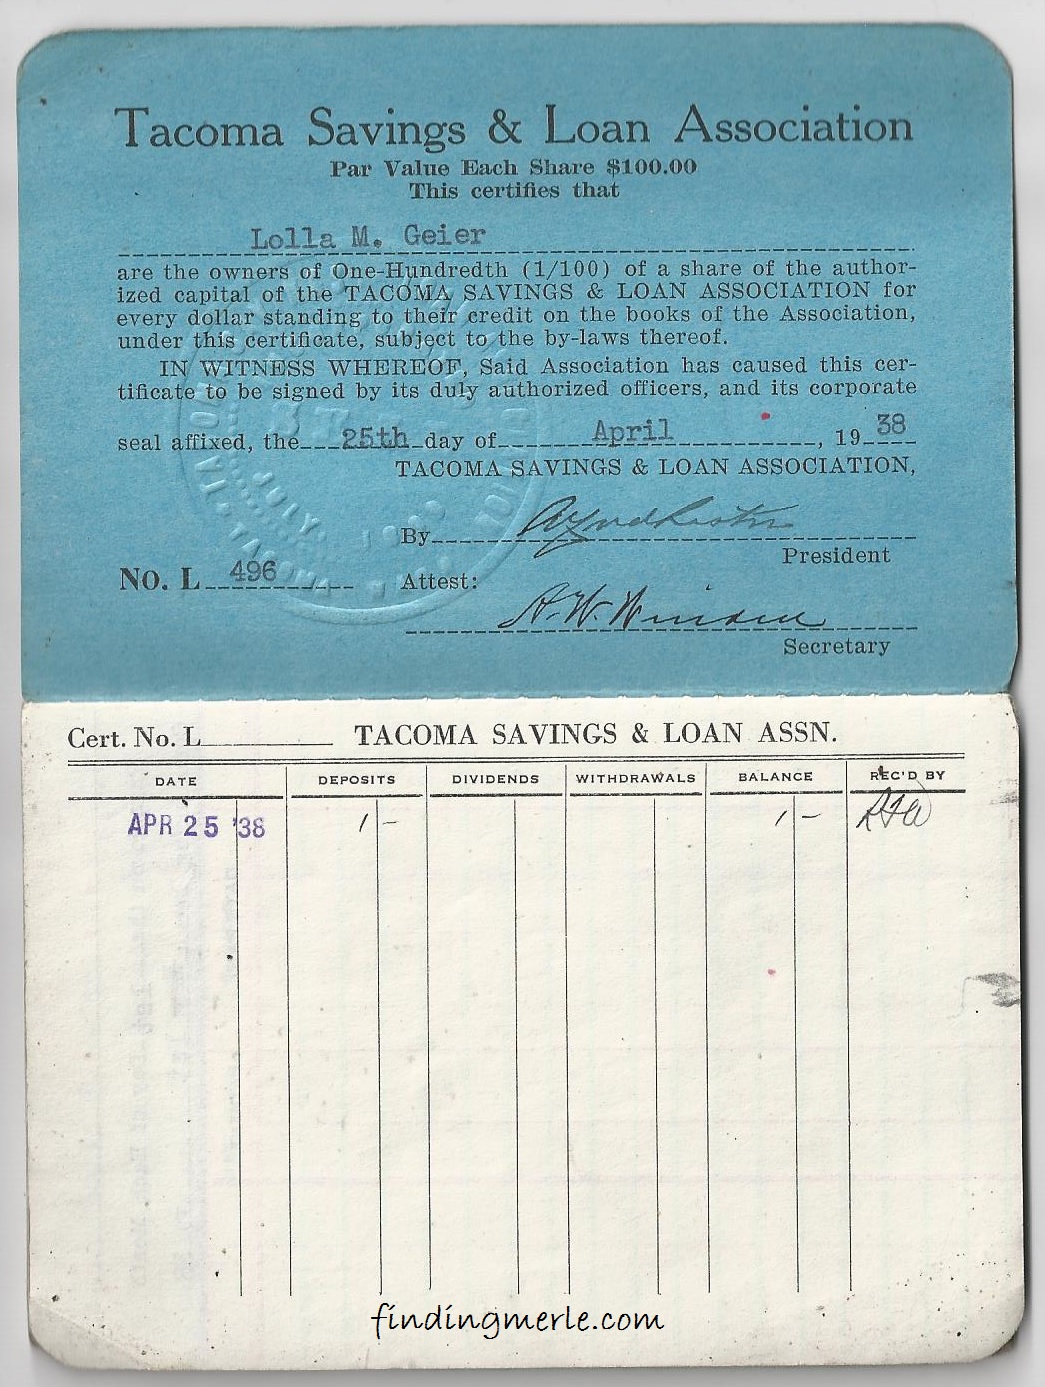 Tacoma Savings & Loan Association
Par Value Each Share $100.00
This certifies that
Lolla M. Geier
are the owners of One-Hundredth (1/100) of a share of the author-
ized capital of the TACOMA SAVINGS & LOAN ASSOCIATION for
every dollar standing to their credit on the books of the Association,
under this certificate, subject to the by-laws thereof.
IN WITNESS WHEREOF, Said Association has caused this cer-
tificate to be signed by its duly authorized officers, and its corporate
seal affixed, the 25th day of April, 19 38
TACOMA SAVINGS & LOAN ASSOCIATION,
By
President
No. L 496 Attest:
Secretary
Cert. No. L TACOMA SAVINGS & LOAN ASSN.
DATE DEPOSITS DIVIDENDS WITHDRAWALS BALANCE REC'D BY
APR 25 '38 1 – 1 –
findingmerle.com